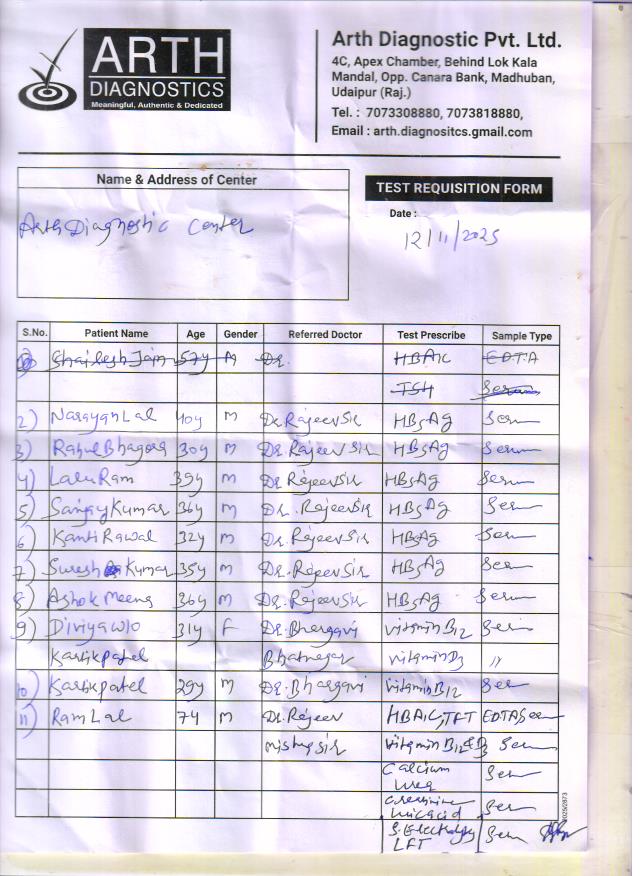 ARTH
DIAGNOSTICS
Meaningful, Authentic & Dedicated
Arth Diagnostic Pvt. Ltd.
4C, Apex Chamber, Behind Lok Kala
Mandal, Opp. Canara Bank, Madhuban,
Udaipur (Raj.)
Tel. : 7073308880, 7073818880,
Email : arth.diagnositcs.gmail.com
Name & Address of Center
Arth Diagnostic Center
TEST REQUISITION FORM
Date :
12/11/2025
S.No. Patient Name Age Gender Referred Doctor Test Prescribe Sample Type
Shailesh Jain 57y M Dr. HBA1C EDTA
TSH Serum
2) Narayan Lal 40y M Dr Rajeev Sir HBsAg Serum
3) Rahul Bhagora 30y M Dr. Rajeev Sir HBsAg Serum
4) Lalu Ram 39y M Dr Rajeev Sir HBsAg Serum
5) Sanjay Kumar 36y M Dr. Rajeev Sir HBsAg Serum
6) Kanti Rawal 32y M Dr. Rajeev Sir HBsAg Serum
7) Suresh Kumar 35y M Dr. Rajeev Sir HBsAg Serum
8) Ashok Meena 36y M Dr. Rajeev Sir HBsAg Serum
9) Diviya W/o 31y F Dr. Bhargavi Vitamin B12 Serum
Kartik patel Bhatnagar Vitamin D3 "
10) Kartik patel 29y M Dr. Bhargavi Vitamin B12 Ser
11) Ram Lal 74 M Dr. Rajeev HBA1C, TFT EDTA Serum
Mishra sir Vitamin B12 & D3 Serum
Calcium
Urea Serum
Creatinine
Uric acid Serum
S. Electrolyte
LFT Serum
2025/2873